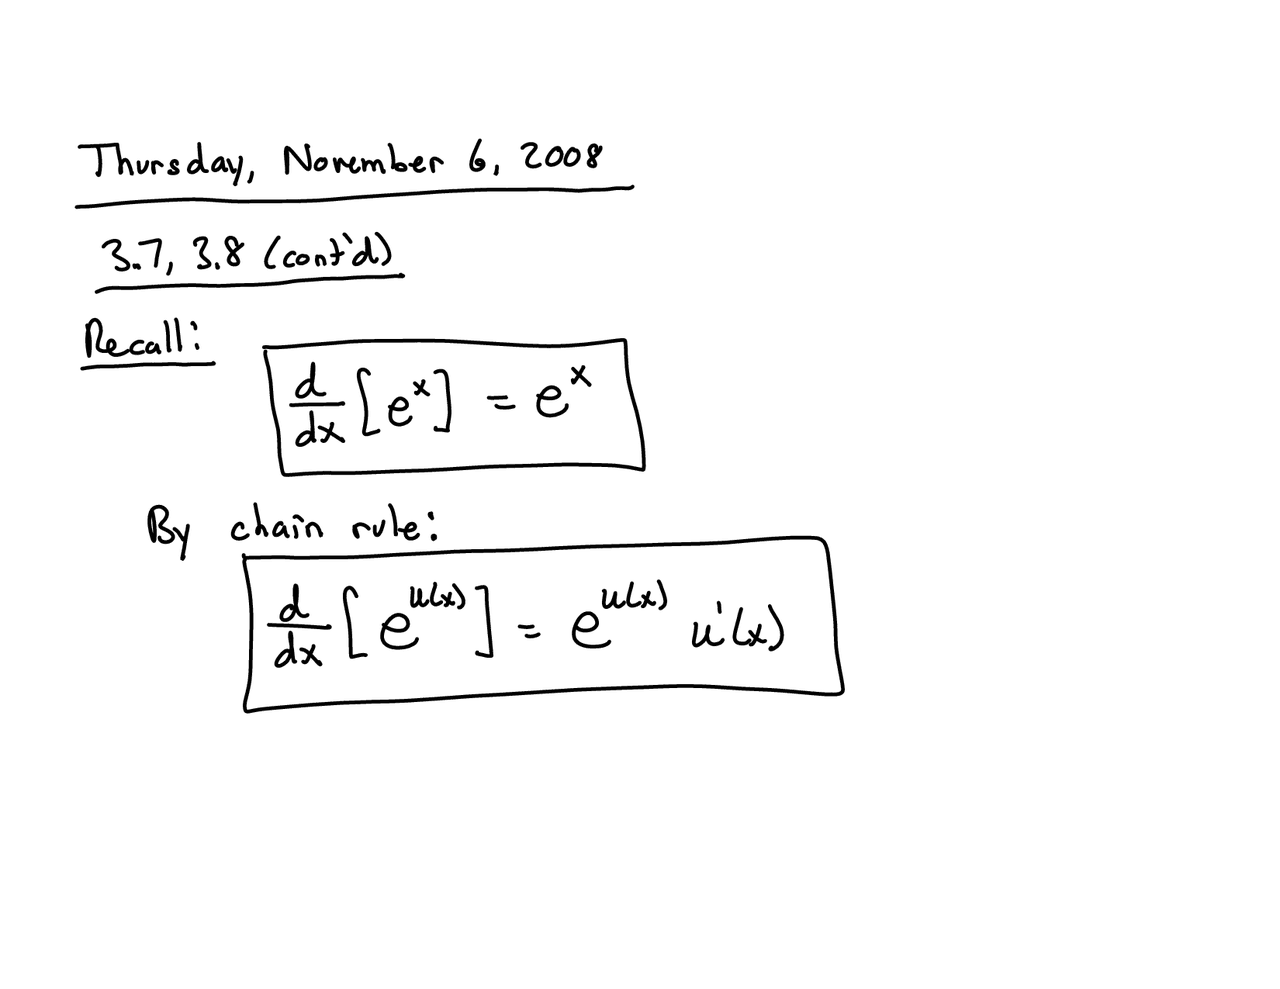 Thursday, November 6, 2008
3.7, 3.8 (cont'd)
Recall:
d/dx [e^x] = e^x
By chain rule:
d/dx [e^u(x)] = e^u(x) u'(x)